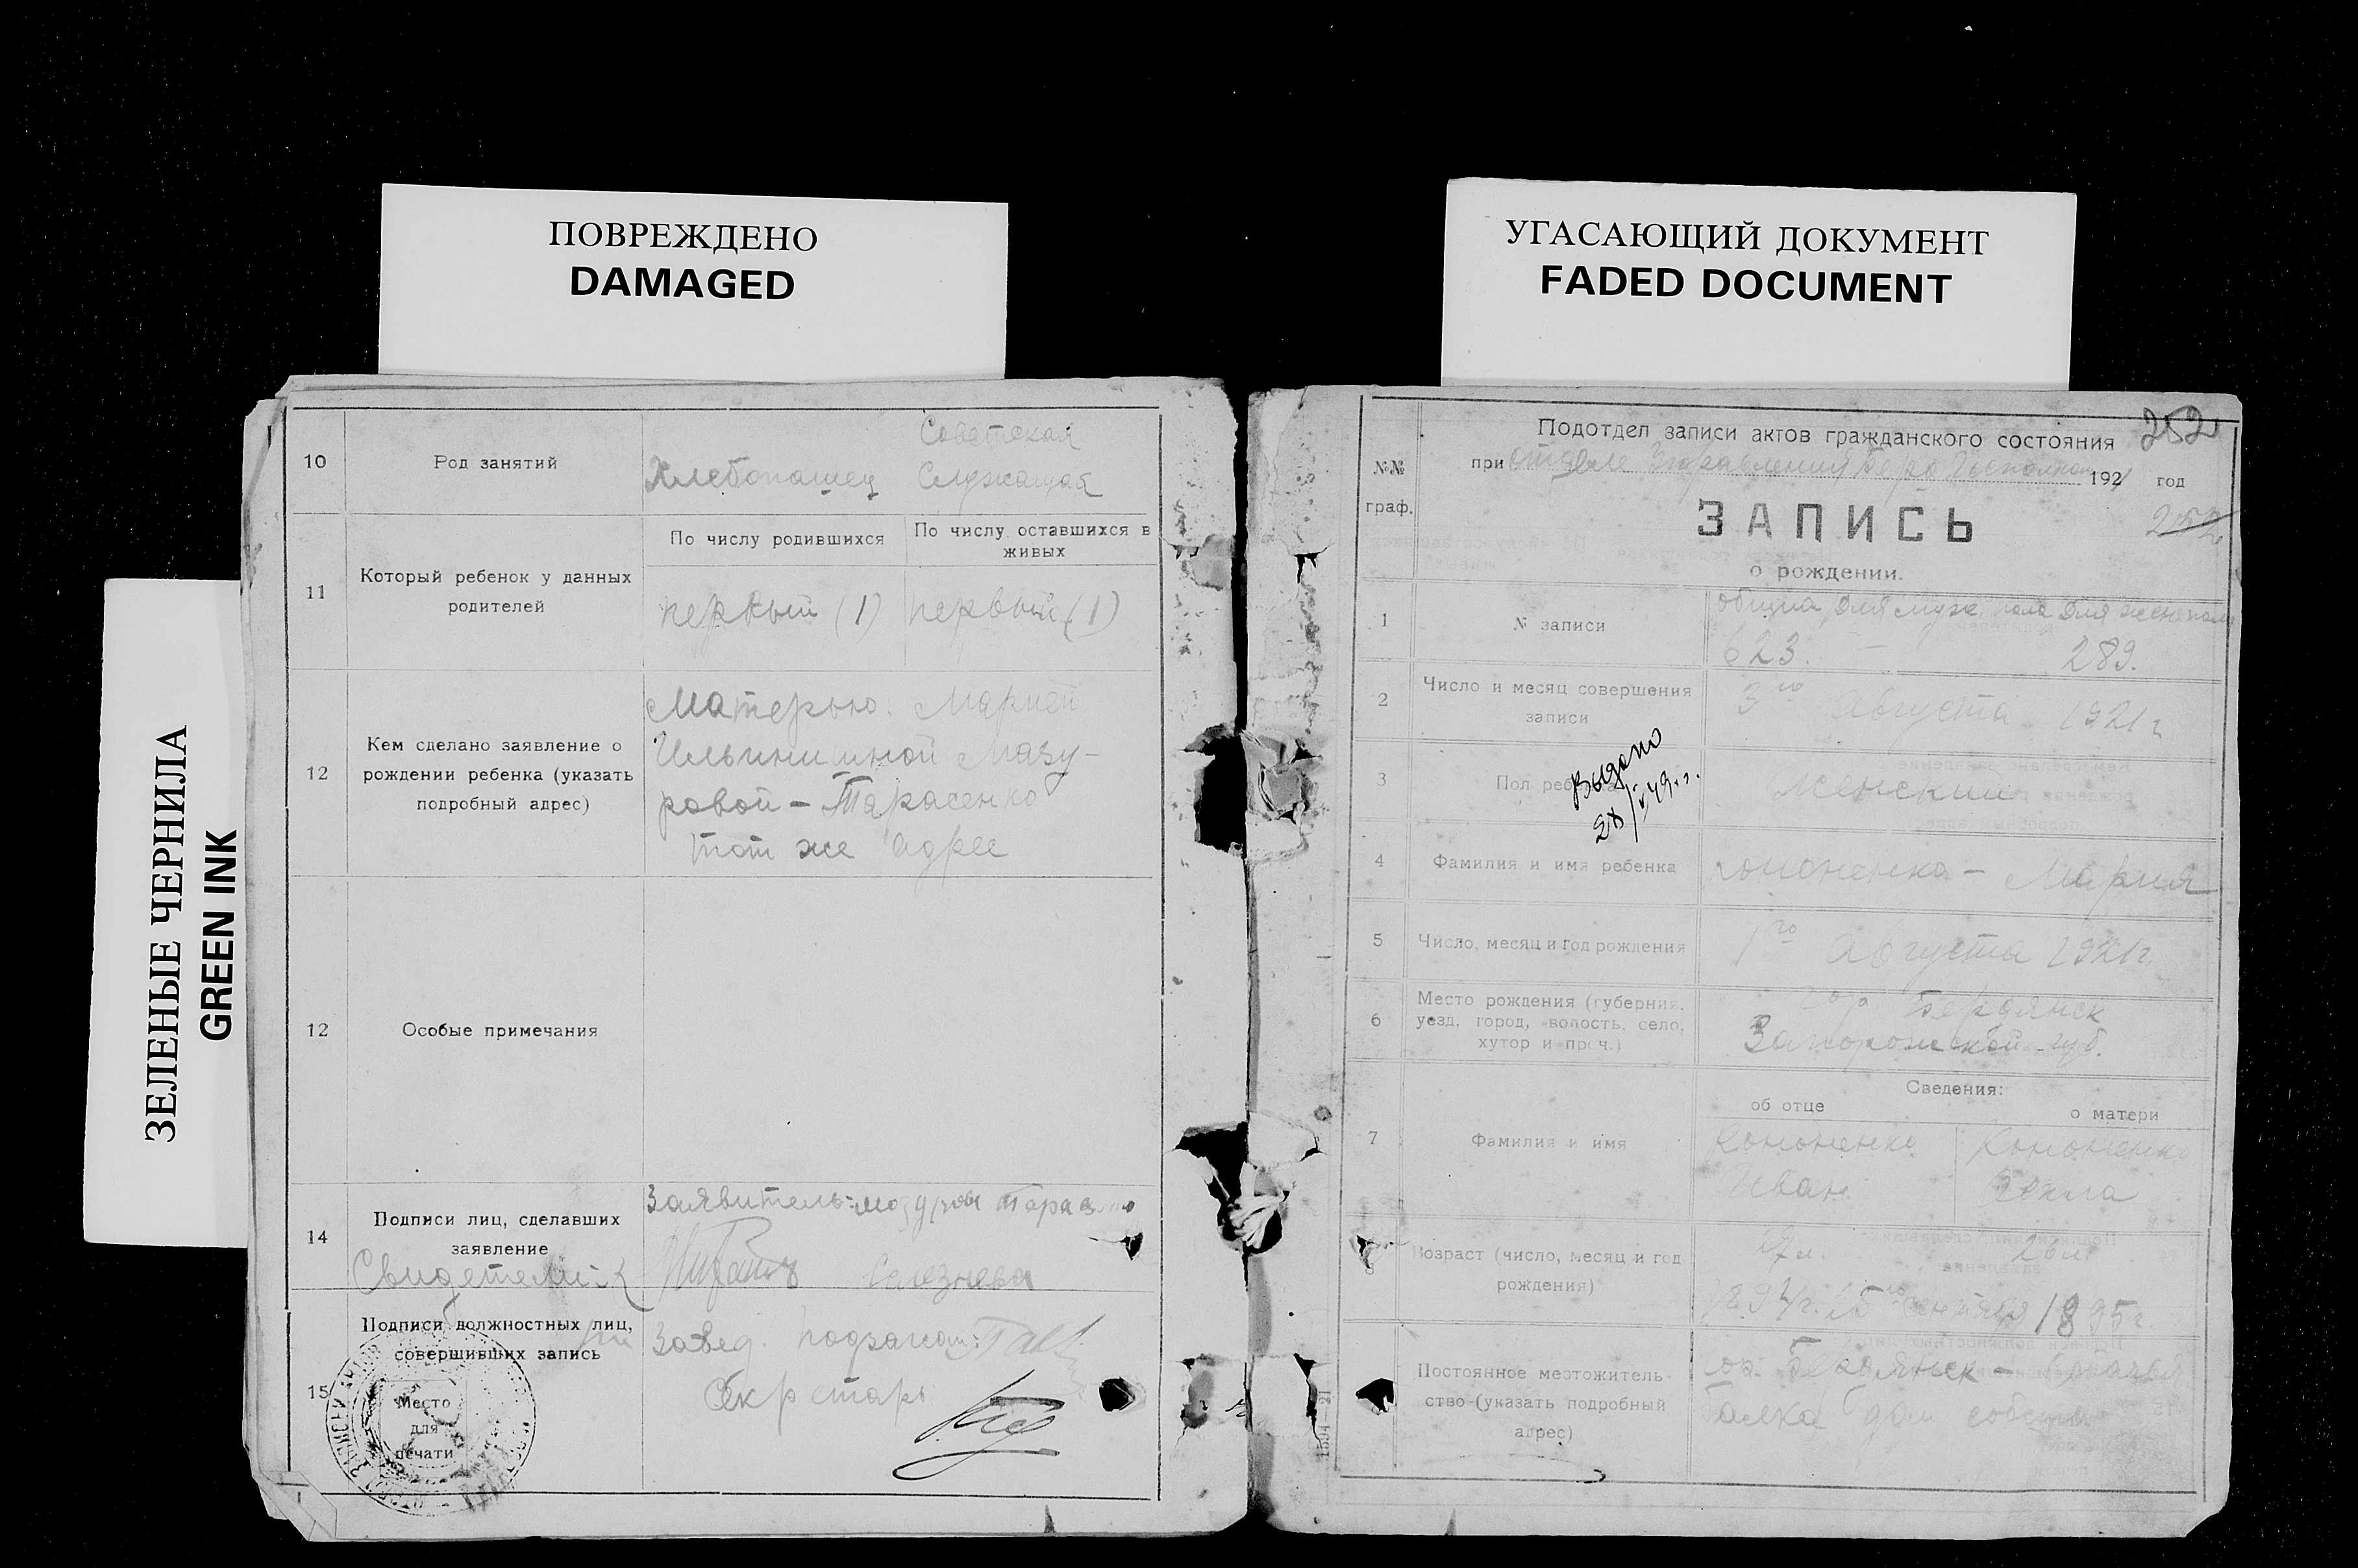 ПОВРЕЖДЕНО
DAMAGED
УГАСАЮЩИЙ ДОКУМЕНТ
FADED DOCUMENT
ЗЕЛЕНЫЕ ЧЕРНИЛА
GREEN INK
10
Род занятий
Хлебопашец
Советская
Служащая
11
Который ребенок у данных
родителей
По числу родившихся
По числу оставшихся в
живых
первый (1)
первый (1)
12
Кем сделано заявление о
рождении ребенка (указать
подробный адрес)
Матерью: Марией
Ильинишной Мазу-
ровой - Тарасенко
тот же адрес
12
Особые примечания
14
Подписи лиц, сделавших
заявление
Свидетели:
Заявитель:
Селезнева
15
Подписи должностных лиц,
совершивших запись
Место
для
печати
Завед.
Секретарь
252
№№
граф.
Подотдел записи актов гражданского состояния
при отделе Управления 1921 год
252
ЗАПИСЬ
о рождении.
1
№ записи
общий для муж. пола для женск. пола
623. — 289.
2
Число и месяц совершения
записи
3го Августа 1921 г
3
Пол ребенка
Женский
Выдано
4
Фамилия и имя ребенка
Кононенко - Мария
5
Число, месяц и год рождения
1го Августа 1921 г
6
Место рождения (губерния,
уезд, город, волость, село,
хутор и проч.)
гор Бердянск
Запорожской губ.
7
Фамилия и имя
Сведения:
об отце
о матери
Кононенко
Иван
Кононенко
Фекла
8
Возраст (число, месяц и год
рождения)
27 л.
26 л
сентября 1895 г.
Постоянное местожитель-
ство (указать подробный
адрес)
Бердянск -
дом
1591—21